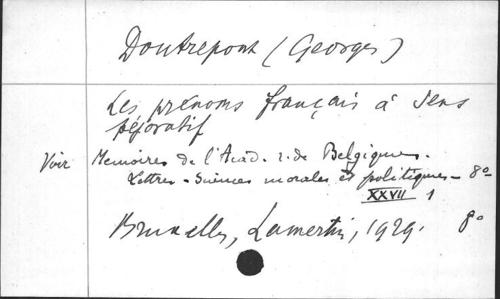 Doutrepont (Georges)
Les prénoms français à sens
péjoratif
Voir Memoires de l'Acad. r. de Belgique.
Lettres - Sciences morales et politiques - 8º
XXVII 1
Bruxelles, Lamertin, 1929. 8º